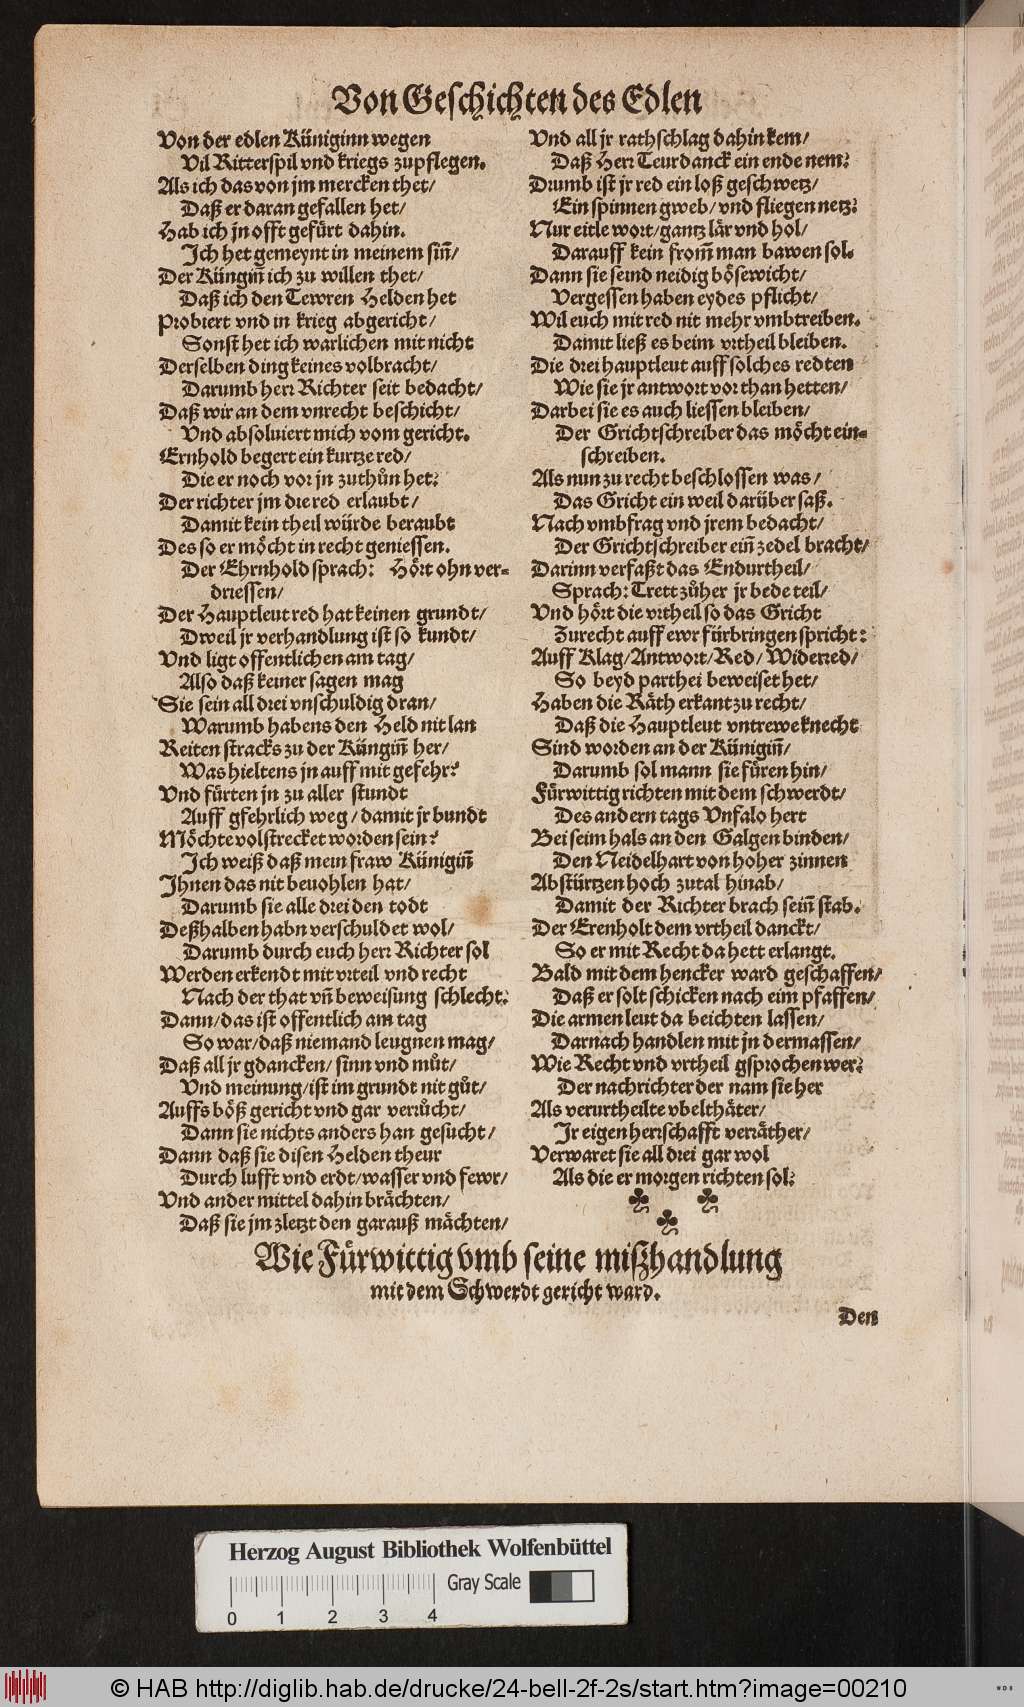 Von Geschichten des Edlen
Von der edlen Küniginn wegen
Vil Ritterspil vnd kriegs zupflegen.
Als ich das von jm mercken thet/
Daß er daran gefallen het/
Hab ich jn offt gefürt dahin.
Ich het gemeynt in meinem sin̄/
Der Küngin̄ ich zu willen thet/
Daß ich den Tewren Helden het
Probiert vnd in krieg abgericht/
Sonst het ich warlichen mit nicht
Derselben ding keines volbracht/
Darumb herr Richter seit bedacht/
Daß wir an dem vnrecht beschicht/
Vnd absoluiert mich vom gericht.
Ernhold begert ein kurtze red/
Die er noch vor jn zuthůn het:
Der richter jm die red erlaubt/
Damit kein theil würde beraubt
Des so er möcht in recht geniessen.
Der Ehrnhold sprach: Hört ohn ver-
driessen/
Der Hauptleut red hat keinen grundt/
Dweil jr verhandlung ist so kundt/
Vnd ligt offentlichen am tag/
Also daß keiner sagen mag
Sie sein all drei vnschuldig dran/
Warumb habens den Held nit lan
Reiten stracks zu der Küngin̄ her/
Was hieltens jn auff mit gefehr?
Vnd fürten jn zu aller stundt
Auff gfehrlich weg/ damit jr bundt
Möchte volstrecket worden sein?
Ich weiß daß mein fraw Künigin̄
Ihnen das nit beuohlen hat/
Darumb sie alle drei den todt
Deßhalben habn verschuldet wol/
Darumb durch euch herr Richter sol
Werden erkendt mit vrteil vnd recht
Nach der that vn̄ beweisung schlecht:
Dann/ das ist offentlich am tag
So war/ daß niemand leugnen mag/
Daß all jr gdancken/ sinn vnd můt/
Vnd meinung/ ist im grundt nit gůt/
Auffs böß gericht vnd gar verrůcht/
Dann sie nichts anders han gesucht/
Dann daß sie disen Helden theur
Durch lufft vnd erdt/ wasser vnd fewr/
Vnd ander mittel dahin brächten/
Daß sie jm zletzt den garauß mächten/
Vnd all jr rathschlag dahin kem/
Daß Herr Teurdanck ein ende nem:
Drumb ist jr red ein loß geschwetz/
Ein spinnen gweb/ vnd fliegen netz:
Nur eitle wort/ gantz lär vnd hol/
Darauff kein from̄ man bawen sol.
Dann sie seind neidig bösewicht/
Vergessen haben eydes pflicht/
Wil euch mit red nit mehr vmbtreiben.
Damit ließ es beim vrtheil bleiben.
Die drei hauptleut auff solches redten
Wie sie jr antwort vor than hetten/
Darbei sie es auch liessen bleiben/
Der Grichtschreiber das möcht ein-
schreiben.
Als nun zu recht beschlossen was/
Das Gricht ein weil darüber saß.
Nach vmbfrag vnd jrem bedacht/
Der Grichtschreiber ein̄ zedel bracht/
Darinn verfaßt das Endurtheil/
Sprach: Trett zůher jr bede teil/
Vnd hört die vrtheil so das Gricht
Zurecht auff ewr fürbringen spricht:
Auff Klag/ Antwort/ Red/ Widerred/
So beyd parthei beweiset het/
Haben die Räth erkant zu recht/
Daß die Hauptleut vntrewe knecht
Sind worden an der Künigin̄/
Darumb sol mann sie füren hin/
Fürwittig richten mit dem schwerdt/
Des andern tags Vnfalo hert
Bei seim hals an den Galgen binden/
Den Neidelhart von hoher zinnen
Abstürtzen hoch zutal hinab/
Damit der Richter brach sein̄ stab.
Der Erenholt dem vrtheil danckt/
So er mit Recht da hett erlangt.
Bald mit dem hencker ward geschaffen/
Daß er solt schicken nach eim pfaffen/
Die armen leut da beichten lassen/
Darnach handlen mit jn dermassen/
Wie Recht vnd vrtheil gsprochen wer:
Der nachrichter der nam sie her
Als verurtheilte vbelthäter/
Ir eigen herrschafft verräther/
Verwaret sie all drei gar wol
Als die er morgen richten sol:
Wie Fürwittig vmb seine mißhandlung
mit dem Schwerdt gericht ward.
Den
Herzog August Bibliothek Wolfenbüttel
Gray Scale
0 1 2 3 4
© HAB http://diglib.hab.de/drucke/24-bell-2f-2s/start.htm?image=00210